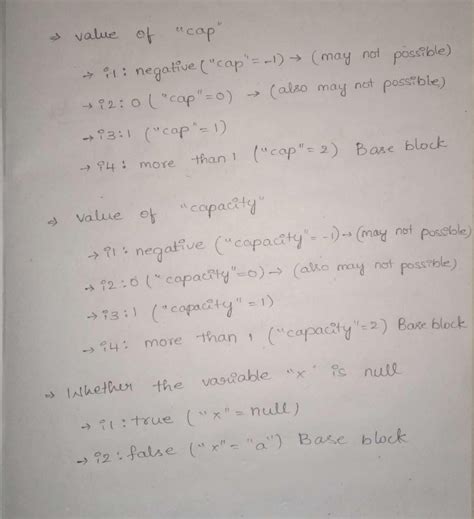 → value of "cap"
→ i1: negative ("cap"= -1) → (may not possible)
→ i2: 0 ("cap"=0) → (also may not possible)
→ i3: 1 ("cap"= 1)
→ i4: more than 1 ("cap"= 2) Base block
→ value of "capacity"
→ i1: negative ("capacity"= -1) → (may not possible)
→ i2: 0 ("capacity"=0) → (also may not possible)
→ i3: 1 ("capacity" = 1)
→ i4: more than 1 ("capacity"=2) Base block
→ Whether the variable "x" is null
→ i1: true ("x"= null)
→ i2: false ("x"= "a") Base block